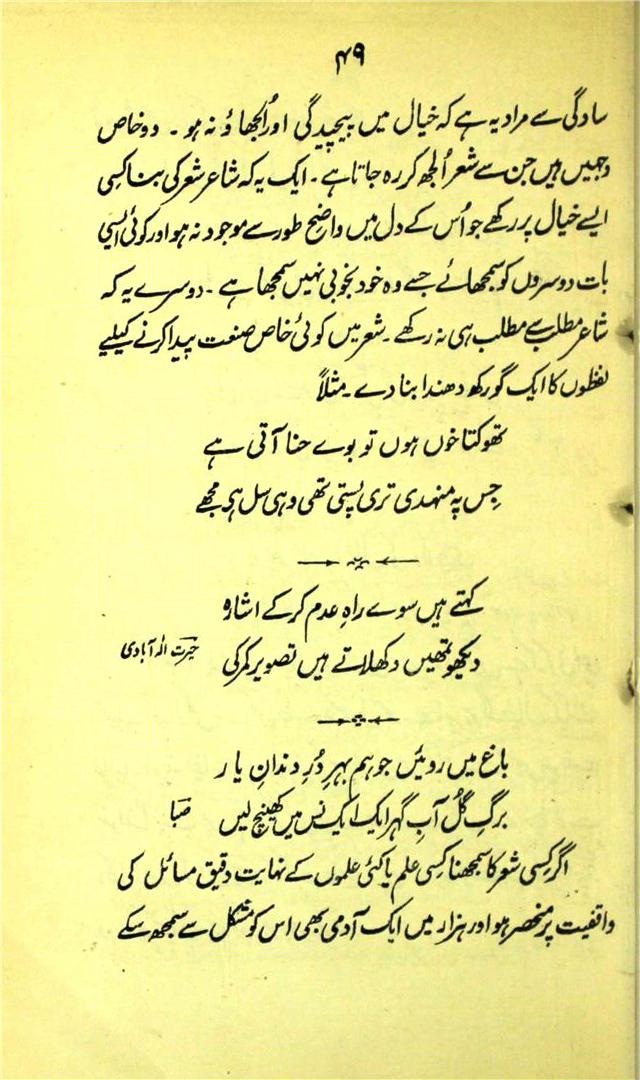 ۴۹
سادگی سے مراد یہ ہے کہ خیال میں پیچیدگی اور اُلجھاؤ نہ ہو ۔ دو خاص
وجہیں ہیں جن سے شعر اُلجھ کر رہ جاتا ہے ۔ ایک یہ کہ شاعر شعر کی بنا کسی
ایسے خیال پر رکھے جو اُس کے دل میں واضح طور سے موجود نہ ہو اور کوئی ایسی
بات دوسروں کو سمجھائے جسے وہ خود بخوبی نہیں سمجھا ہے ۔ دوسرے یہ کہ
شاعر مطلب سے مطلب ہی نہ رکھے ۔ شعر میں کوئی خاص صنعت پیدا کرنے کیلیے
لفظوں کا ایک گورکھ دھندا بنا دے ۔ مثلاً
تھوکتا خوں ہوں تو بوے حنا آتی ہے
جس پہ منہدی تری پستی تھی وہی سل ہی مجھے
کہتے ہیں سوے راہِ عدم کر کے اشارہ
دیکھو تمھیں دکھلاتے ہیں تصویر کمر کی
حیرت الہ آبادی
باغ میں روئیں جو ہم بہرِ دُرِ دندانِ یار
برگِ گُل آبِ گہر ایک ایک نس میں کھینچ لیں صبا
اگر کسی شعر کا سمجھنا کسی علم یا کئی علموں کے نہایت دقیق مسائل کی
واقفیت پر منحصر ہو اور ہزار میں ایک آدمی بھی اس کو مشکل سے سمجھ سکے